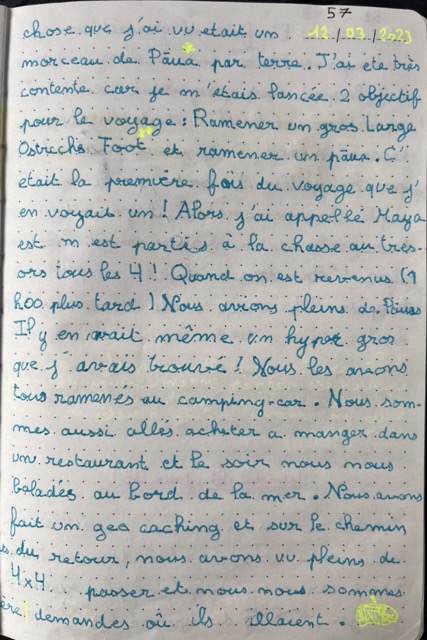 57
chose que j'ai vu etait un 12/03/2023
morceau de Pāua par terre. J'ai ete très
contente car je m'étais lancée 2 objectif
pour le voyage : Ramener un gros Large
Ostrichs Foot et ramener un pāua. C'
etait la première fois du voyage que j'
en voyait un ! Alors j'ai appellé Maya
est m est partis à la chasse au trés-
ors tous les 4 ! Quand on est revenus (1
h00 plus tard) Nous avions pleins de Pāuas
Il y en avait même un hyper gros
que j'avais trouvé ! Nous les avons
tous ramenés au camping-car. Nous som-
mes aussi alles acheter a manger dans
un restaurant et le soir nous nous
baladés au bord de la mer. Nous avons
fait un geo caching et sur le chemin
du retour, nous avons vu pleins de
4x4 passer et nous nous sommes
demandes où ils allaient.